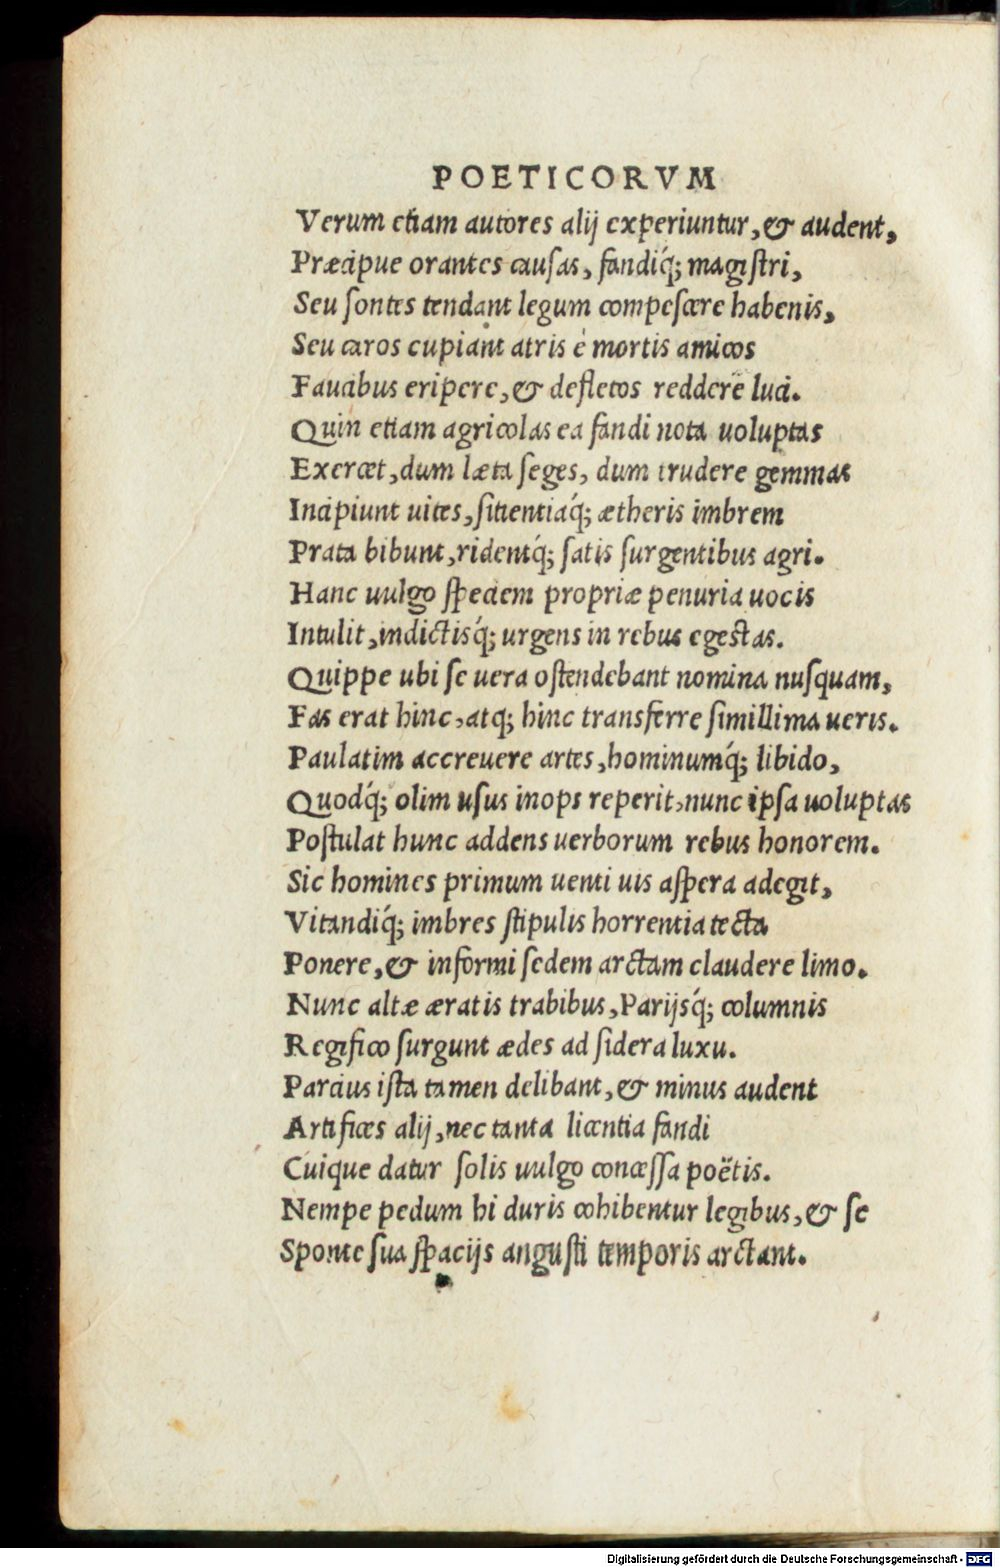 POETICORVM
Verum etiam autores alij experiuntur, & audent,
Præcipue orantes causas, fandiq́; magistri,
Seu sontes tendant legum compescere habenis,
Seu caros cupiant atris è mortis amicos
Faucibus eripere, & defletos reddere luci.
Quin etiam agricolas ea fandi nota uoluptas
Exercet, dum læta seges, dum trudere gemmas
Incipiunt uites, sitientiaq́; ætheris imbrem
Prata bibunt, ridentq́; satis surgentibus agri.
Hanc uulgo speciem propriæ penuria uocis
Intulit, indictisq́; urgens in rebus egestas.
Quippe ubi se uera ostendebant nomina nusquam,
Fas erat hinc, atq; hinc transferre simillima ueris.
Paulatim accreuere artes, hominumq́; libido,
Quodq́; olim usus inops reperit, nunc ipsa uoluptas
Postulat hunc addens uerborum rebus honorem.
Sic homines primum uenti uis aspera adegit,
Vitandiq́; imbres stipulis horrentia tecta
Ponere, & informi sedem arctam claudere limo.
Nunc altæ æratis trabibus, Parijsq́; columnis
Regifico surgunt ædes ad sidera luxu.
Parcius ista tamen delibant, & minus audent
Artifices alij, nec tanta licentia fandi
Cuique datur solis uulgo concessa poëtis.
Nempe pedum hi duris cohibentur legibus, & se
Sponte sua spacijs angusti temporis arctant.
Digitalisierung gefördert durch die Deutsche Forschungsgemeinschaft - DFG